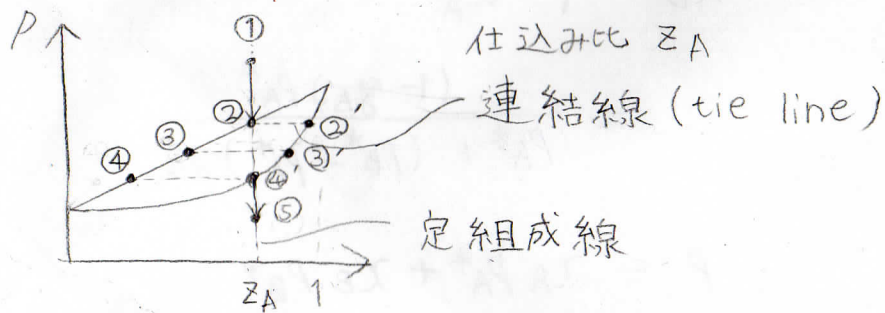 P
①
仕込み比 ZA
②
②'
連結線 (tie line)
③
③'
④
④'
⑤
定組成線
ZA
1